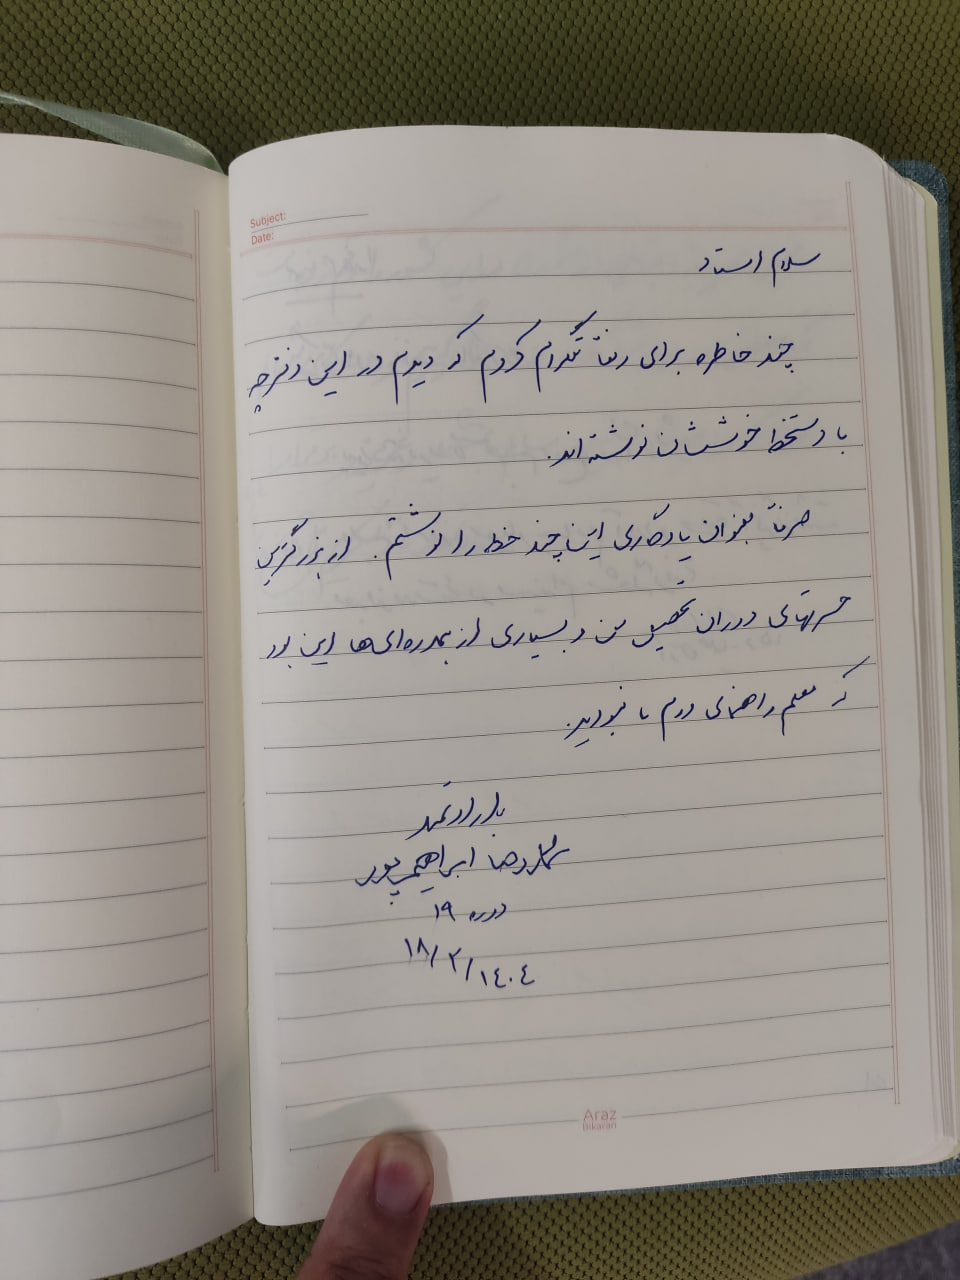 Subject:
Date:
سلام استاد
چند خاطره برای رفقا تعریف کردم که دیدم در این دفترچه
با دستخط خوششان نوشته‌اند.
صرفاً بعنوان یادگاری این چند خط را نوشتم. از بزرگترین
حسرتهای دوران تحصیل من و بسیاری از هم‌دوره‌ای‌ها این بود
که معلم راهنمای دوم ما نبودید.
با ارادتمند
محمدرضا ابراهیم‌پور
دوره ۱۹
۱۴۰۴/۲/۱۸
Araz
Bikaran